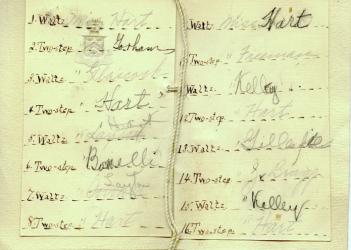 1. Waltz Miss Hart
2. Two-step " Gorham
3. Waltz "
4. Two-step " Hart
5. Waltz "
6. Two-step " Bonelli
7. Waltz " Taylor
8. Two-step " Hart
Waltz Miss Hart
Two-step " Freeman
Waltz Kelley
12. Two-step " Hart
13. Waltz " Gillespie
14. Two-step "
15. Waltz " Kelley
16. Two-step " Hart